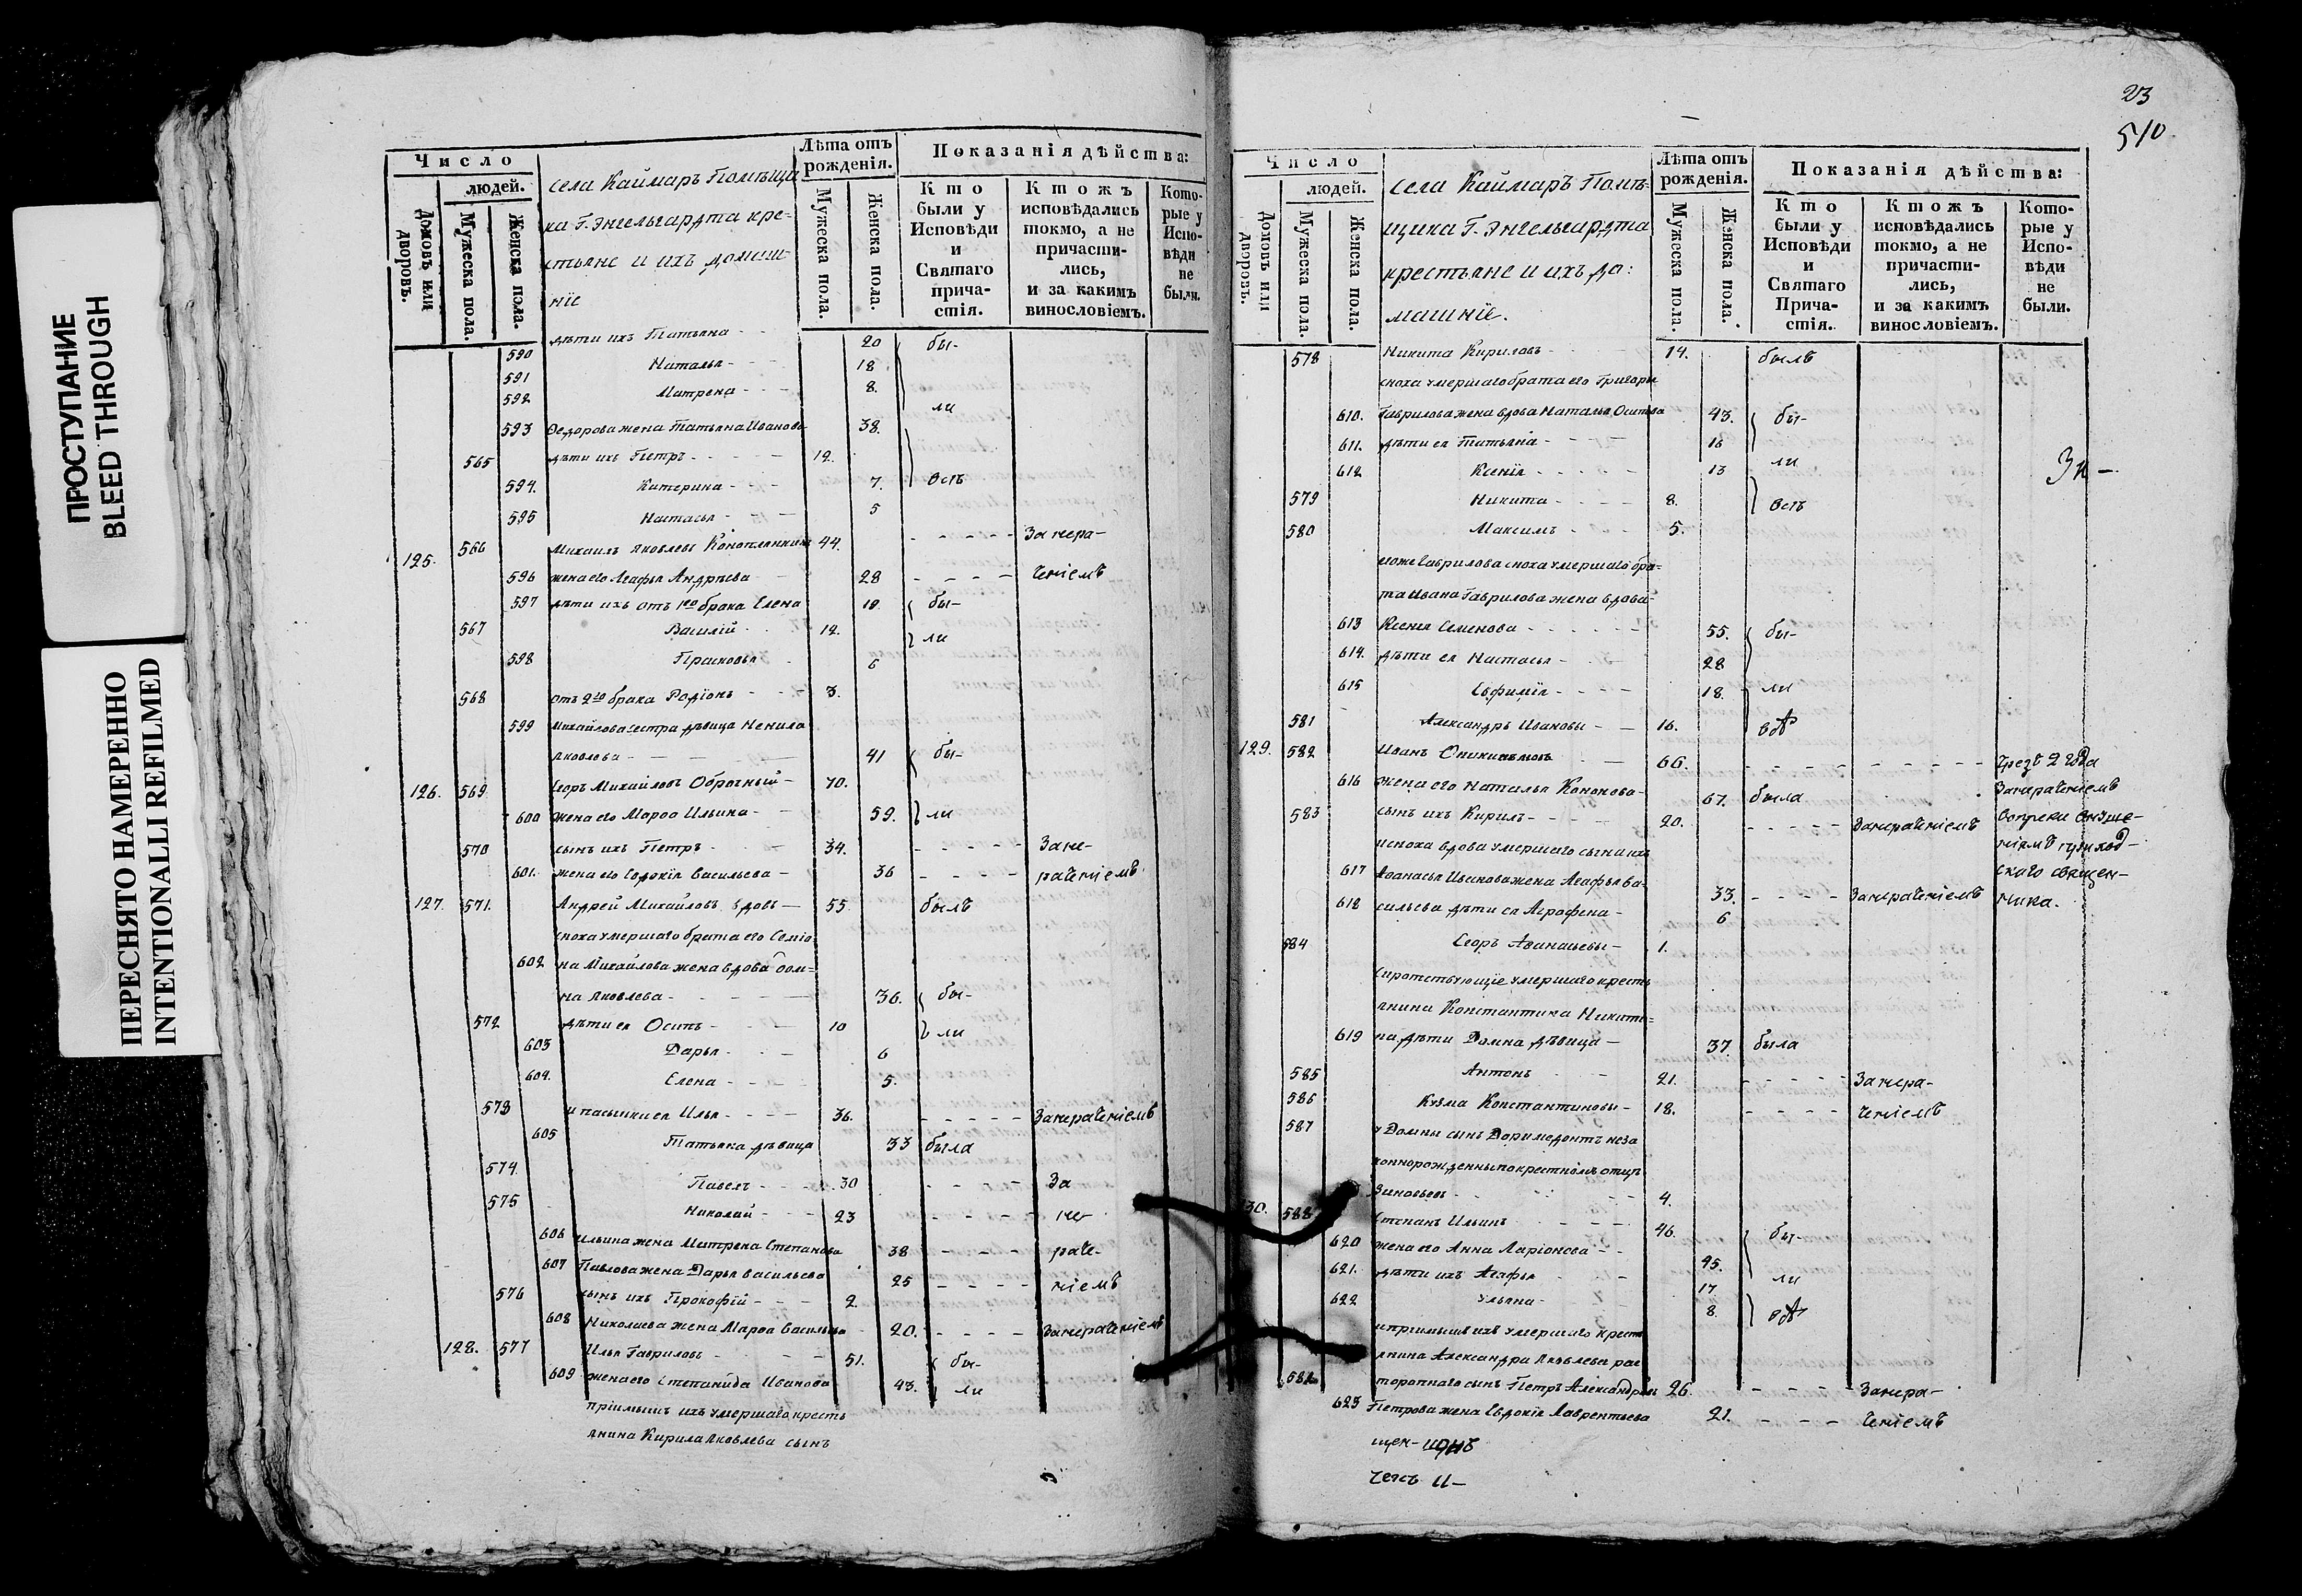 ПРОСТУПАНИЕ
BLEED THROUGH
ПЕРЕСНЯТО НАМЕРЕННО
INTENTIONALLI REFILMED
Число
людей.
Домовъ или дворовъ.
Мужеска пола.
Женска пола.
села Каймаръ Помѣщи
ка Г. Энгельгардта кре-
стьяне и ихъ домаш-
ніе
Лѣта отъ рожденія.
Мужеска пола.
Женска пола.
Показанія дѣйства:
Кто были у Исповѣди и Святаго прича- стія.
Ктожъ исповѣдались токмо, а не причасти- лись, и за какимъ винословіемъ.
Кото- рые у Испо- вѣди не были.
590 дѣти ихъ Татьяна 20 бы-
591 Наталья 18
592 Матрена 8. ли
593 Ѳедорова жена Татьяна Иванова 38.
565 дѣти ихъ Петръ 12.
594. Катерина 7. Всѣ
595 Настасья 5
125. 566 Михаилъ Яковлевъ 44. За нера-
596 жена его Агафья Андрѣева 28 ченіемъ
597 дѣти ихъ отъ 1го брака Елена 18. бы-
567 Василій 12. ли
598 Прасковья 6
568 отъ 2го брака Родіонъ 3.
599 Михайлова сестра дѣвица Ненила
Яковлева 41 бы-
126. 569 Егоръ Михайловъ Оброчный 70.
600 жена его Марѳа Ильина 59. ли
570 сынъ ихъ Петръ 34. За не-
601. жена его Евдокія Васильева 36 раченіемъ
127. 571. Андрей Михайловъ вдовъ 55 былъ
сноха умершаго брата его Семіо
602 на Михайлова жена вдова Дом-
на Яковлева 36. бы-
572 дѣти ея Осипъ 10 ли
603 Дарья 6
604. Елена 5.
573 и пасынки ея Илья 36. За нераченіемъ
605 Татьяна дѣвица 33 была
574 Павелъ 30 За
575 Николай 23 не-
606 Ильина жена Матрена Степанова 38 раче-
607 Павлова жена Дарья Васильева 25 ніемъ
576 сынъ ихъ Прокофій 2.
608 Николаева жена Марѳа Васильева 20. За нераченіемъ
128. 577 Илья Гавриловъ 51. бы-
609 жена его Степанида Иванова 43. ли
пріимышъ ихъ умершаго кресть
янина Кирила Яковлева сынъ
23
510
Число
людей.
Домовъ или дворовъ.
Мужеска пола.
Женска пола.
села Каймаръ Помѣ-
щика Г. Энгельгардта
крестьяне и ихъ до:
машніе.
Лѣта отъ рожденія.
Мужеска пола.
Женска пола.
Показанія дѣйства:
Кто были у Исповѣди и Святаго Прича- стія.
Ктожъ исповѣдались токмо, а не причасти- лись, и за какимъ винословіемъ.
Кото- рые у Испо- вѣди не были.
578 Никита Кириловъ 14. былъ
сноха умершаго брата его Григорья
610. Гаврилова жена вдова Наталья Осипова 43. бы-
611. дѣти ея Татьяна 16
612 Ксенія 13 ли
579 Никита 8. Всѣ
580 Максимъ 5.
егоже Гаврилова сноха умершаго бра-
та Ивана Гаврилова жена вдова
613 Ксенія Семенова 55. бы-
614. дѣти ея Настасья 28
615 Евфимія 18. ли
581 Александръ Ивановы 16. всѣ
129. 582 Иванъ 66. Чрезъ 2 года
616 жена его Наталья Кононова 67. была За нераченіемъ
583 сынъ ихъ Кирилъ 20. За нераченіемъ Вопреки внуше-
и сноха вдова умершаго сына ихъ ніямъ приход-
617 Аѳанасья Иванова жена Агафья Ва- 33. За нераченіемъ скаго священ-
618 сильева дѣти ея Аграфена 6 ника.
584 Егоръ Аѳанасьевы 1.
сиротствующіе умершаго кресть
янина Константина Никити-
619 на дѣти Домна дѣвица 37. была
585 Антонъ 21. За нера-
586 Кузма Константиновы 18. ченіемъ
587 у Домны сынъ Доримедонтъ неза
коннорожденный по крестномъ отцѣ
Зиновьевъ 4.
130. 588 Степанъ Ильинъ 46. бы-
620 жена его Анна Ларіонова 45.
621. дѣти ихъ Агафья 17 ли
622 Ульяна 8. всѣ
и пріимышъ ихъ умершаго кресть
янина Александра Яковлева
сынъ Петръ Александровъ 26. За нера-
623 Петрова жена Евдокія Лаврентьева 21. ченіемъ